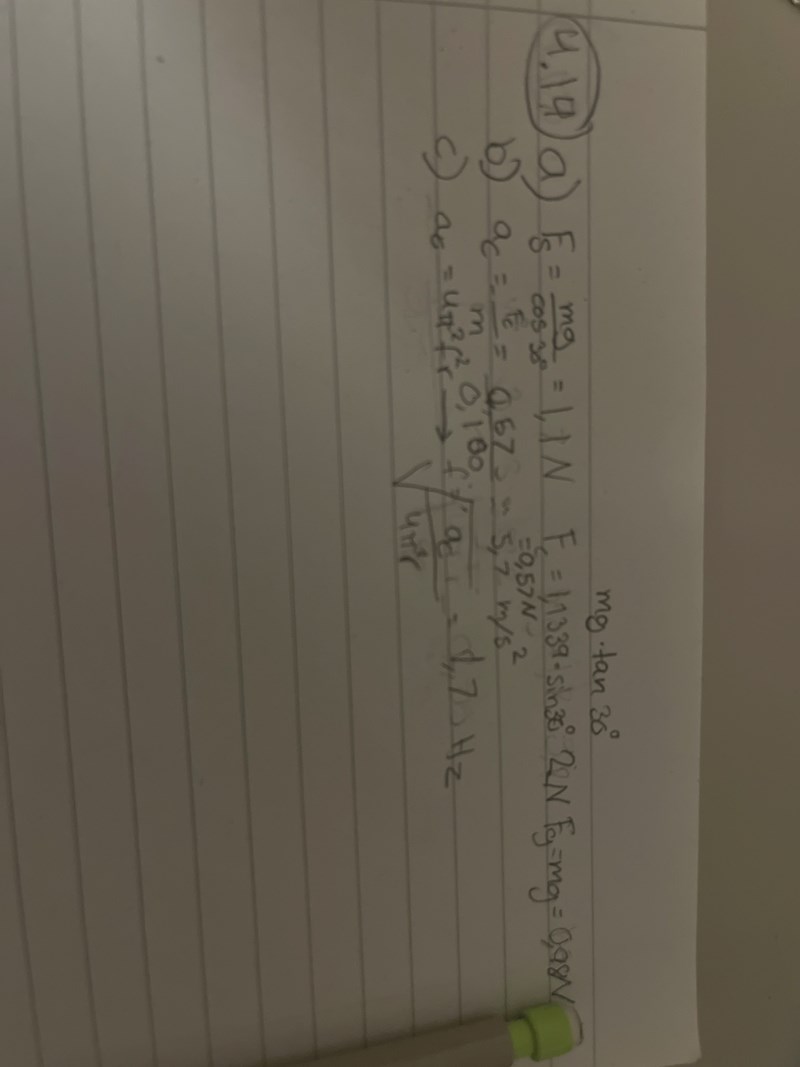 mg·tan 30°
4.14 a) Fs = mg/cos 30° = 1,1 N Fc = 1,1339·sin30° N Fg = mg = 0,98N
= 0,57N
b) ac = Fc/m = 0,57/0,100 = 5,7 m/s²
c) ac = 4π²f²r → f = √(ac/4π²r) = 1,7 Hz